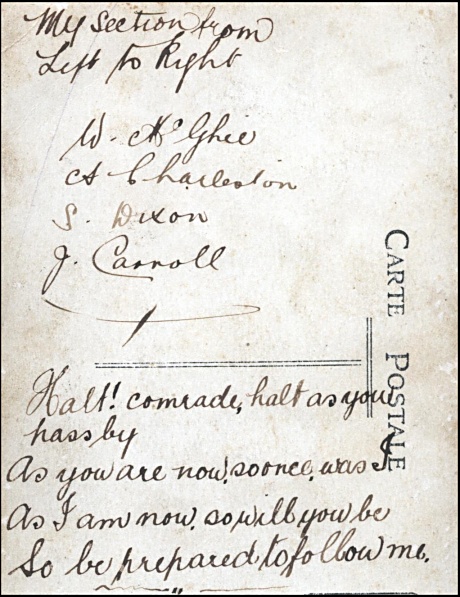 My Section from
Left to Right
W. McGhie
A Charleston
S. Dixon
J. Carroll
CARTE POSTALE
Halt! comrade, halt as you
pass by
As you are now, so once, was I
As I am now, so will you be
So be prepared to follow me.